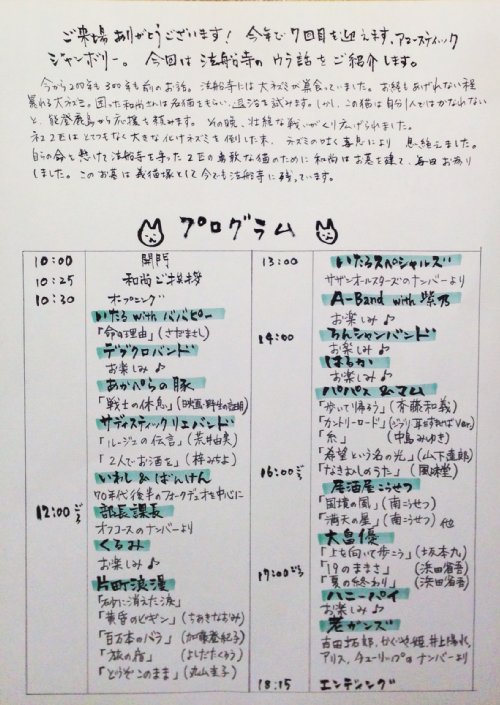 ご来場ありがとうございます！ 今年で7回目を迎えます、アコースティック
ジャンボリー。 今回は法船寺のウラ話をご紹介します。
今から200年も300年も前のお話。法船寺には大ネズミが巣食っていました。お経もあげれない程
暴れる大ネズミ。困った和尚さんは名猫をもらい、退治を試みます。しかし、この猫は自分1人ではかなわない
と、能登鹿島から応援を頼みます。その晩、壮絶な戦いがくり広げられました。
ネコ2匹はとてつもなく大きな化けネズミを倒した末、ネズミの吐く毒息により 息絶えました。
自らの命を懸けて法船寺を守った2匹の勇敢な猫のために和尚はお墓を建て、毎日お参り
しました。このお墓は義猫塚として今でも法船寺に残っています。
プログラム
10:00 開門
10:25 和尚ご挨拶
10:30 オープニング
いたる with ババピー
「命の理由」(さだまさし)
デグクロバンド
お楽しみ♪
あかぺらの豚
「戦士の休息」(映画・野生の証明)
サディスティックリエバンド
「ルージュの伝言」(荒井由実)
「2人でお酒を」(梓みちよ)
いわし & ばんけん
70年代後半のフォークデュオを中心に
12:00ごろ 部長課長
オフコースのナンバーより
くるみ
お楽しみ♪
片町浪漫
「砂に消えた涙」
「黄昏のビギン」(ちあきなおみ)
「百万本のバラ」(加藤登紀子)
「旅の宿」(よしだたくろう)
「どうぞこのまま」(丸山圭子)
13:00 いたるスペシャルズ
サザンオールスターズのナンバーより
A-Band with 紫乃
お楽しみ♪
14:00 るんシャンバンド
お楽しみ♪
はるか
お楽しみ♪
パパス & ママ
「歩いて帰ろう」(斉藤和義)
「カントリーロード」(ジブリ 耳をすませば Ver.)
「糸」 (中島みゆき)
「希望という名の光」(山下達郎)
「なきむしのうた」(風味堂)
16:00ごろ 居酒屋こうせつ
「国境の風」(南こうせつ)
「満天の星」(南こうせつ) 他
大畠優
「上を向いて歩こう」(坂本九)
「19のままさ」 (浜田省吾)
17:00ごろ 「夏の終わり」 (浜田省吾)
ハニーパイ
お楽しみ♪
老がンズ
吉田拓郎、かぐや姫、井上陽水、
アリス、チューリップのナンバーより
18:15 エンディング